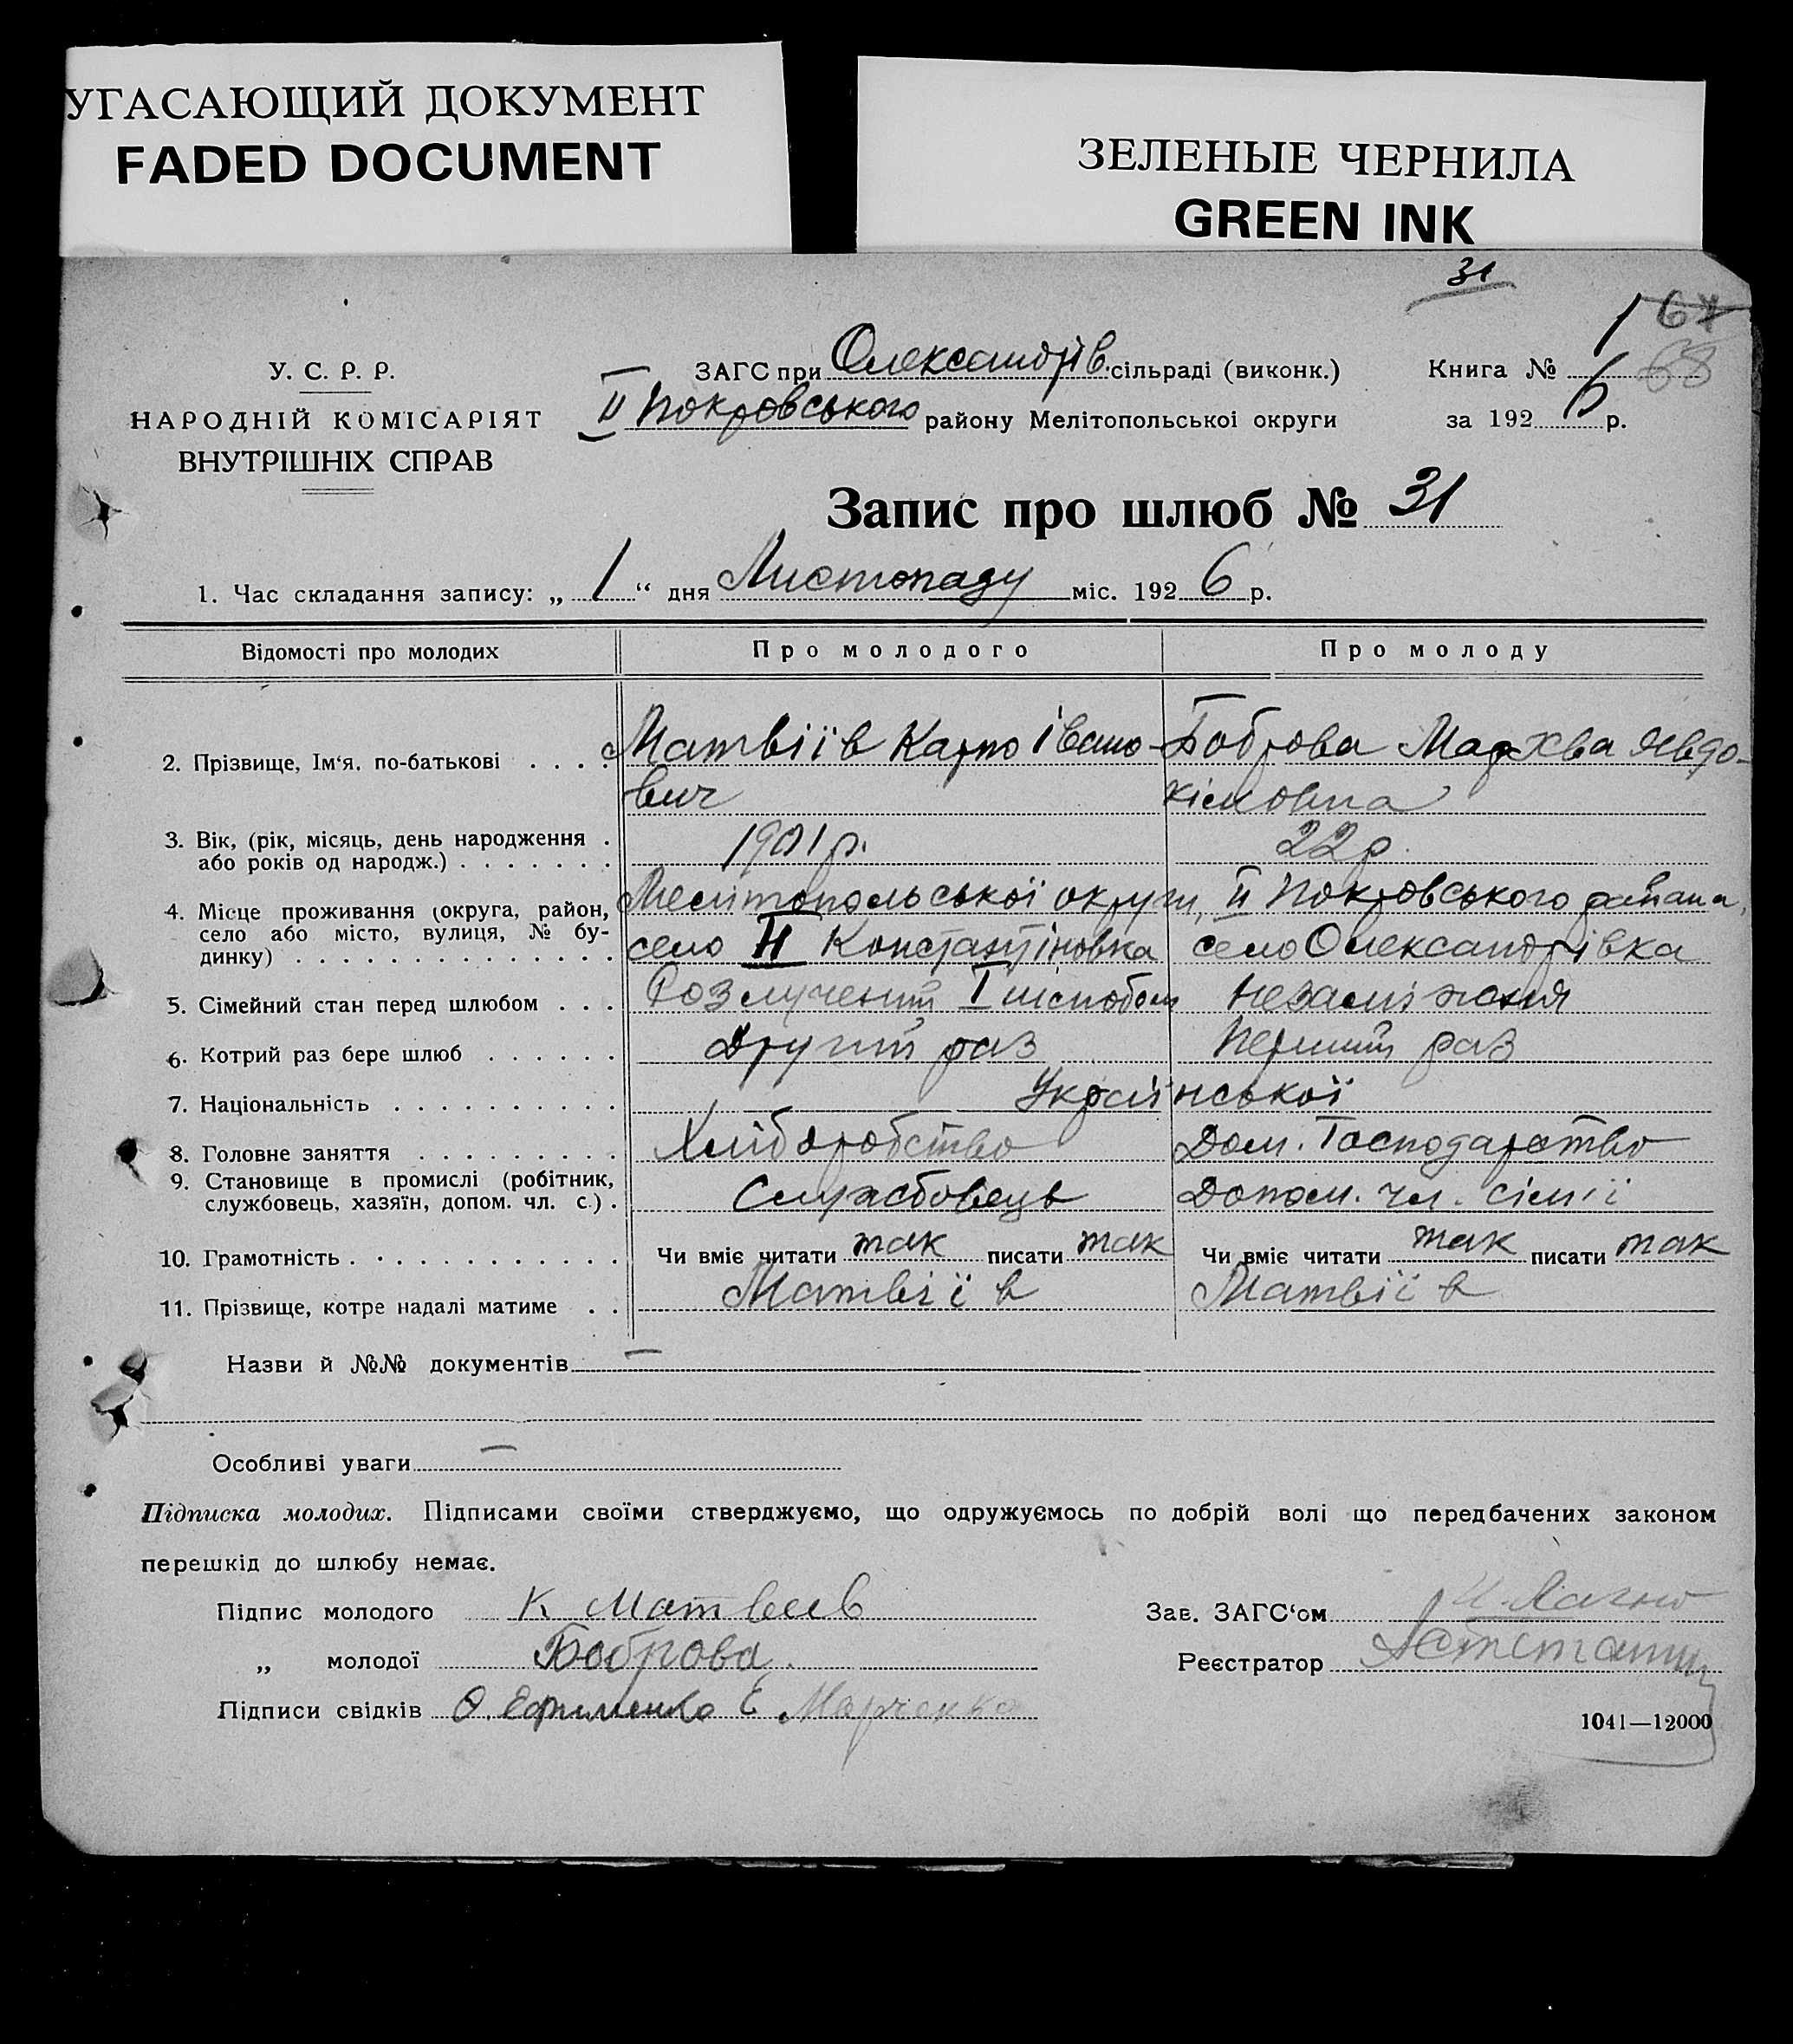 УГАСАЮЩИЙ ДОКУМЕНТ
FADED DOCUMENT
ЗЕЛЕНЫЕ ЧЕРНИЛА
GREEN INK
31
67
68
У. С. Р. Р.
НАРОДНІЙ КОМІСАРІЯТ
ВНУТРІШНІХ СПРАВ
ЗАГС при Олександрів. сільраді (виконк.)
ІІ Покровського району Мелітопольської округи
Книга № 1
за 1926 р.
Запис про шлюб № 31
1. Час складання запису: „ 1 “ дня Листопаду міс. 1926 р.
Відомості про молодих Про молодого Про молоду
2. Прізвище, Ім‘я, по-батькові . . . . Матвіїв Карпо Івано- Боброва Мархва Явдо-
вич кімовна
3. Вік, (рік, місяць, день народження . 1901 р. 22 р.
або років од народж.) . . . . . . .
4. Місце проживання (округа, район, Мелітопольської округи, ІІ Покровського району,
село або місто, вулиця, № бу- село ІІ Константіновка село Олександрівка
динку) . . . . . . . . . . . . . .
5. Сімейний стан перед шлюбом . . . Розлучений І шлюбом Незаміжня
6. Котрий раз бере шлюб . . . . . . Другий раз Перший раз
7. Національність . . . . . . . . . . Української
8. Головне заняття . . . . . . . . . Хліборобство Дом. Господарство
9. Становище в промислі (робітник,
службовець, хазяїн, допом. чл. с.) . Службовець Допом. чл. сімії
10. Грамотність . . . . . . . . . . . Чи вміє читати так писати так Чи вміє читати так писати так
11. Прізвище, котре надалі матиме . . Матвіїв Матвіїв
Назви й №№ документів —
Особливі уваги —
Підписка молодих. Підписами своїми стверджуємо, що одружуємось по добрій волі що передбачених законом
перешкід до шлюбу немає.
Підпис молодого К Матвеев
„ молодої Боброва
Підписи свідків О. Ефименко Е Марченко
Зав. ЗАГС‘ом
Реєстратор
1041—12000